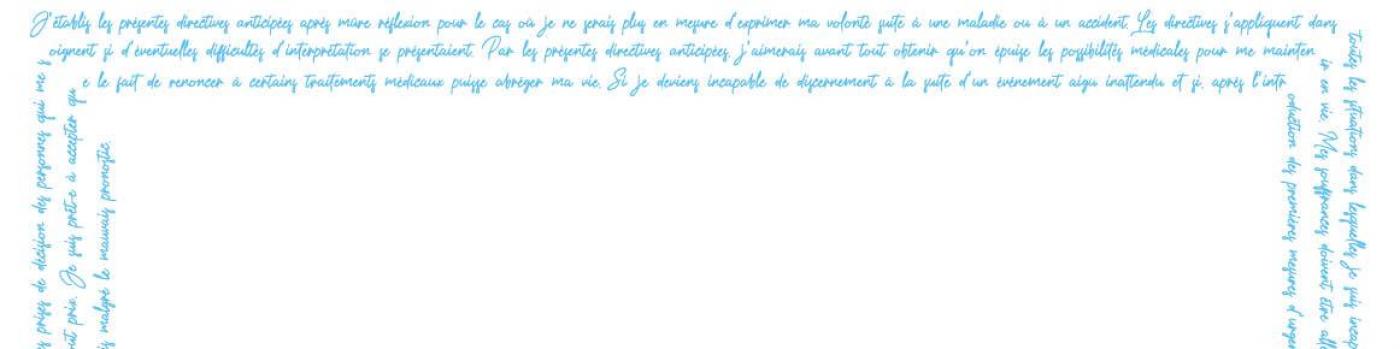 J'établis les présentes directives anticipées après mûre réflexion pour le cas où je ne serais plus en mesure d'exprimer ma volonté suite à une maladie ou à un accident. Les directives s'appliquent dans
toutes les situations dans lesquelles je suis incap
s prises de décision des personnes qui me s
oignent si d'éventuelles difficultés d'interprétation se présentaient. Par les présentes directives anticipées, j'aimerais avant tout obtenir qu'on épuise les possibilités médicales pour me mainten
ir en vie. Mes souffrances doivent être all
out prix. Je suis prêt-e à accepter qu
e le fait de renoncer à certains traitements médicaux puisse abréger ma vie. Si je deviens incapable de discernement à la suite d'un événement aigu inattendu et si, après l'intr
oduction des premières mesures d'urgen
s malgré le mauvais pronostic.